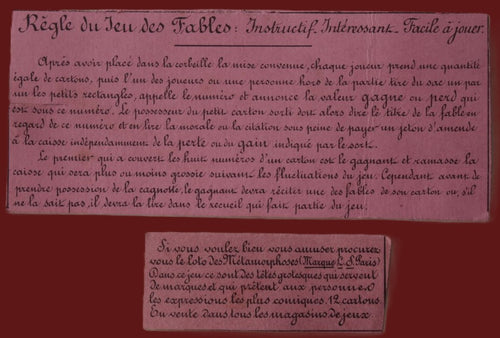 Règle du Jeu des Fables: Instructif. Intéressant. Facile à jouer.
Après avoir placé dans la corbeille la mise convenue, chaque joueur prend une quantité
égale de cartons, puis l'un des joueurs ou une personne hors de la partie tire du sac un par
un les petits rectangles, appelle le numéro et annonce la valeur gagne ou perd qui
est sous ce numéro. Le possesseur du petit carton sorti doit alors dire le titre de la fable en
regard de ce numéro et en lire la morale ou la citation sous peine de payer un jeton d'amende
à la caisse indépendamment de la perte ou du gain indiqué par le sort.
Le premier qui a couvert les huit numéros d'un carton est le gagnant et ramasse la
caisse qui sera plus ou moins grossie suivant les fluctuations du jeu. Cependant avant de
prendre possession de la cagnotte, le gagnant devra réciter une des fables de son carton ou, s'il
ne la sait pas, il devra la lire dans le recueil qui fait partie du jeu.
Si vous voulez bien vous amuser procurez
vous le loto des Métamorphoses (Marque L. S. Paris)
Dans ce jeu ce sont des têtes grotesques qui servent
de marques et qui prêtent aux personnes
les expressions les plus comiques. 12 cartons.
En vente dans tous les magasins de jeux.